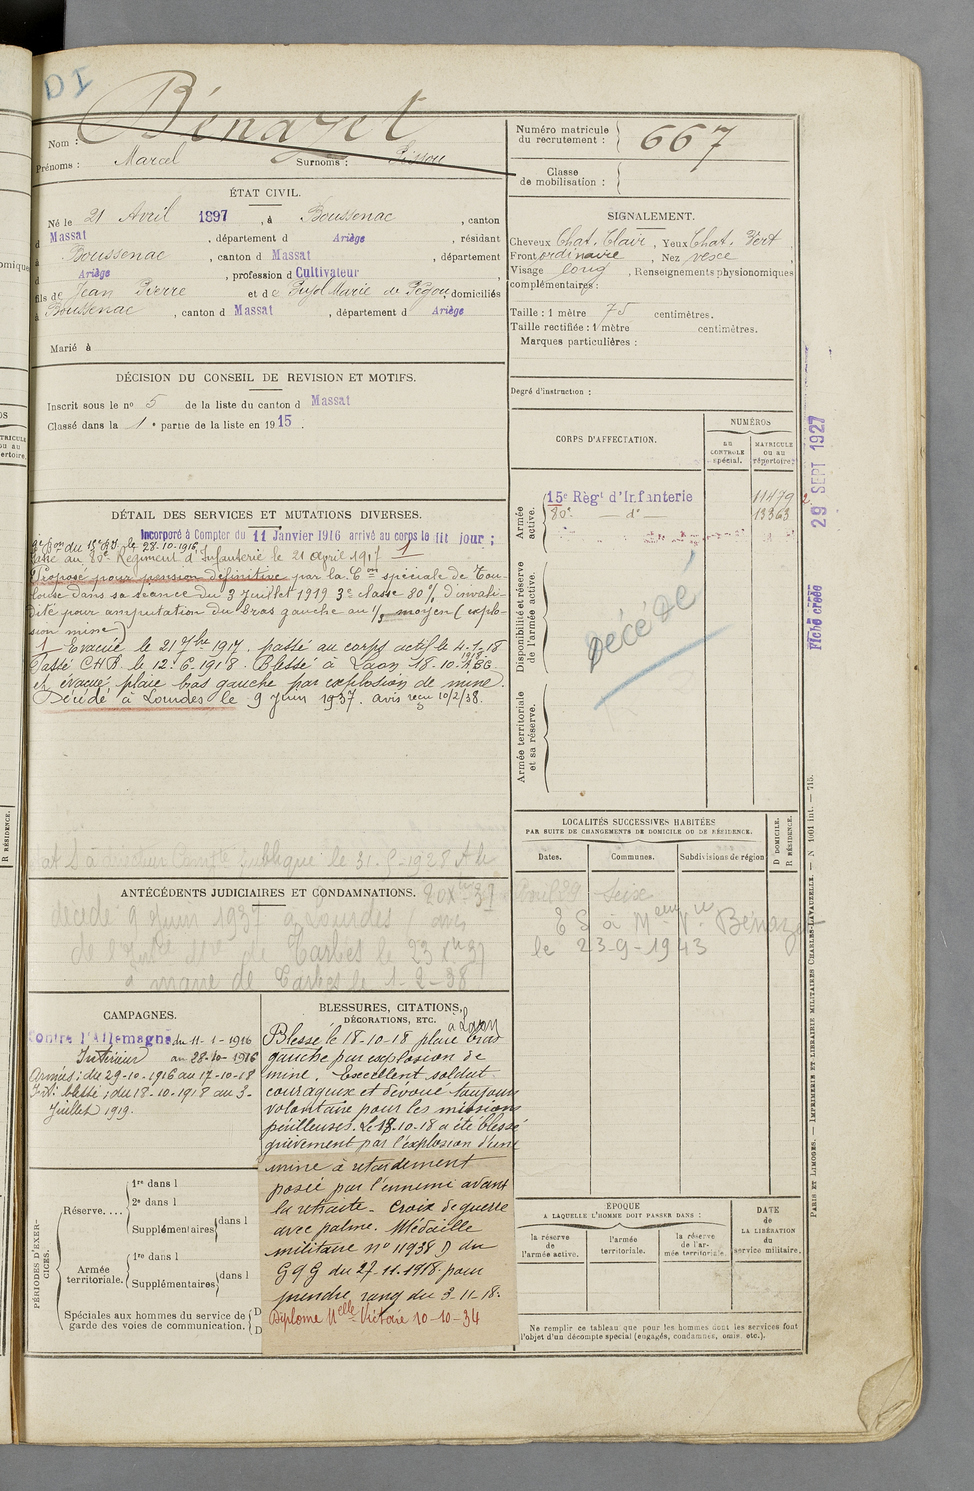 DI
Nom : Bénazet
Prénoms : Marcel Surnoms :
ÉTAT CIVIL.
Né le 21 Avril 1897, à Boussenac, canton
d Massat, département d Ariège, résidant
à Boussenac, canton d Massat, département
d Ariège, profession d Cultivateur
fils de Jean Pierre et de Pujol Marie de Pégou, domiciliés
à Boussenac, canton d Massat, département d Ariège
Marié à
DÉCISION DU CONSEIL DE REVISION ET MOTIFS.
Inscrit sous le no 5 de la liste du canton d Massat
Classé dans la 1e partie de la liste en 1915.
DÉTAIL DES SERVICES ET MUTATIONS DIVERSES.
Incorporé à Compter du 11 Janvier 1916 arrivé au corps le dit jour ;
du 15e le 28-10-1916
Passé au 80e Régiment d'Infanterie le 21 avril 1917 1
Proposé pour pension définitive par la Con spéciale de Tou-
louse dans sa séance du 3 Juillet 1919 3e classe 80% d'invali-
dité pour amputation du bras gauche au 1/3 moyen (explo-
sion mine)
1 Evacué le 21 7bre 1917, passé au corps actif le 4-1-18
Passé CHR le 12-6-1918. Blessé à Laon 18-10-1918
et évacué, plaie bras gauche par explosion de mine.
Décédé à Lourdes le 9 Juin 1937. avis reçu 10/2/38.
le 31-5-1928
ANTÉCÉDENTS JUDICIAIRES ET CONDAMNATIONS.
décédé 9 Juin 1937 à Lourdes / avis
de Tarbes le 23 Xbre 37
mairie de Tarbes le 1-2-38
CAMPAGNES.
Contre l'Allemagne du 11-1-1916
Intérieur au 28-10-1916
Armées ; du 29-10-1916 au 17-10-18
Int: blessé ; du 18-10-1918 au 3-
Juillet 1919.
BLESSURES, CITATIONS,
DÉCORATIONS, ETC.
à Laon
Blessé le 18-10-18 plaie bras
gauche par explosion de
mine. Excellent soldat
courageux et dévoué toujours
volontaire pour les missions
périlleuses. Le 18-10-18 a été blessé
grièvement par l'explosion d'une
mine à retardement
posée par l'ennemi avant
la retraite. Croix de guerre
avec palme. Médaille
militaire no 11938 D du
GQG du 27-11-1918 pour
prendre rang du 3-11-18.
Diplome Melle Victoire 10-10-34
PÉRIODES D'EXERCICES.
Réserve....
1re dans l
2e dans l
Supplémentaires dans l
Armée territoriale.
1re dans l
Supplémentaires dans l
Spéciales aux hommes du service de
garde des voies de communication.
D
D
Numéro matricule
du recrutement : 667
Classe
de mobilisation :
SIGNALEMENT.
Cheveux Chat. Clair, Yeux Chat. Vert,
Front ordinaire, Nez vexe,
Visage long, Renseignements physionomiques
complémentaires :
Taille : 1 mètre 75 centimètres.
Taille rectifiée : 1 mètre centimètres.
Marques particulières :
Degré d'instruction :
CORPS D'AFFECTATION.
NUMÉROS
AU CONTROLE spécial.
MATRICULE ou au répertoire.
Armée active.
15e Règt d'Infanterie 11479
80e — do — 13363
Disponibilité et réserve de l'armée active.
Décédé
Armée territoriale et sa réserve.
29 SEPT 1927
Fiche créée
LOCALITÉS SUCCESSIVES HABITÉES
PAR SUITE DE CHANGEMENTS DE DOMICILE OU DE RÉSIDENCE.
Dates.
Communes.
Subdivisions de région
D DOMICILE.
R RÉSIDENCE.
E S à Mme Vve Bénazet
le 23-9-1943
ÉPOQUE
A LAQUELLE L'HOMME DOIT PASSER DANS :
la réserve de l'armée active.
l'armée territoriale.
la réserve de l'armée territoriale.
DATE
de
LA LIBÉRATION
du
service militaire.
Ne remplir ce tableau que pour les hommes dont les services font
l'objet d'un décompte spécial (engagés, condamnés, omis, etc.).
PARIS ET LIMOGES. — IMPRIMERIE ET LIBRAIRIE MILITAIRES CHARLES-LAVAUZELLE. — N 1001 int. — 715.